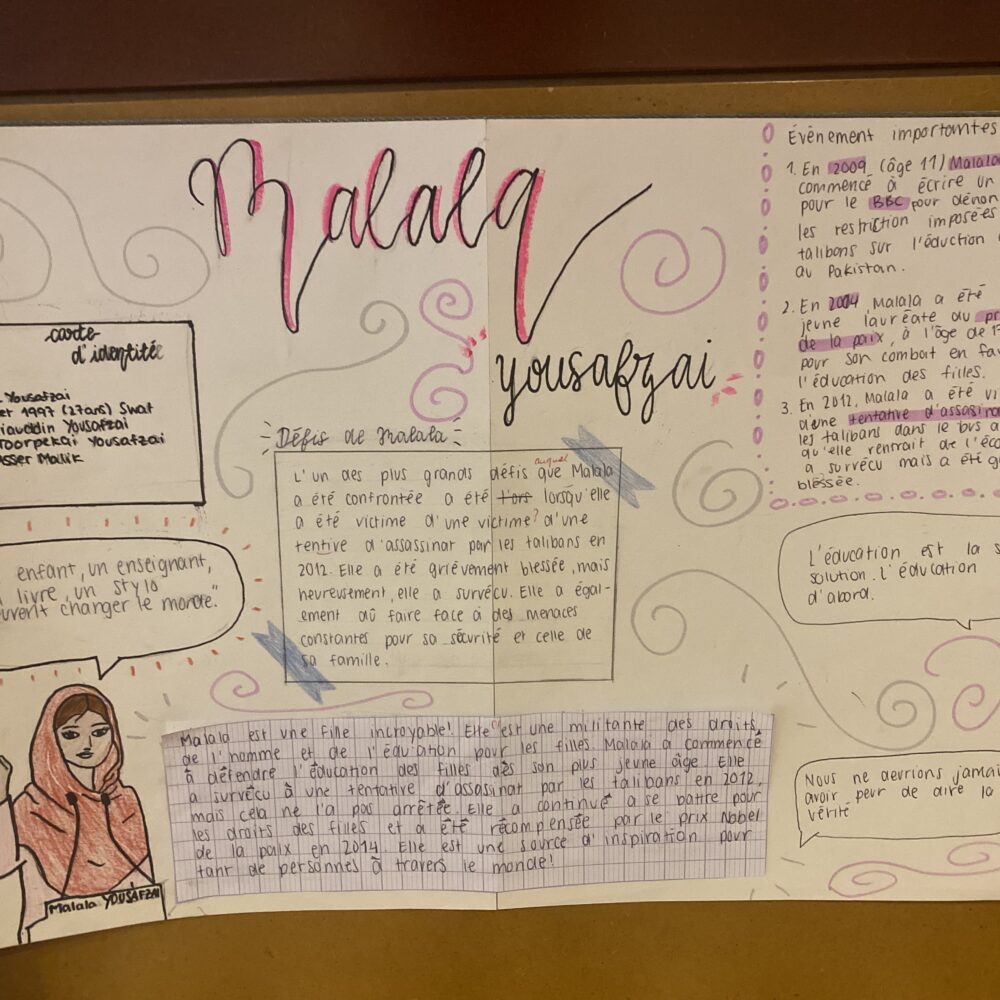 Malala
yousafzai
carte
d'identitée
Yousafzai
et 1997 (27ans) Swat
iauddin Yousafzai
Toorpekai Yousafzai
Asser Malik
enfant, un enseignant,
livre, un stylo
uvent changer le monde."
Malala YOUSAFZAI
Défis de Malala
auquel
L'un des plus grands défis que Malala
a été confrontée a été lors lorsqu'elle
a été victime d'une victime? d'une
tentive d'assassinat par les talibans en
2012. Elle a été grièvement blessée, mais
heureusement, elle a survécu. Elle a égal-
ement dû faire face à des menaces
constantes pour sa sécurité et celle de
sa famille.
Malala est une fille incroyable! Elle est une militante des droits
de l'homme et de l'éducation pour les filles. Malala a commencé
à défendre l'éducation des filles dès son plus jeune âge. Elle
a survécu à une tentative d'assassinat par les talibans en 2012,
mais cela ne l'a pas arrêtée. Elle a continué a se battre pour
les droits des filles et a été récompensée par le prix Nobel
de la paix en 2014. Elle est une source d'inspiration pour
tant de personnes à travers le monde!
Évènement importantes
1. En 2009 (âge 11) Malala
commencé à écrire un
pour le BBC pour dénon
les restriction imposées
talibans sur l'éduction
au Pakistan.
2. En 2004, Malala a été
jeune lauréate du pr
de la paix, à l'âge de 17
pour son combat en fav
l'éducation des filles.
3. En 2012, Malala a été vi
d'une tentative d'assasina
les talibans dans le bus a
qu'elle rentrait de l'éco
a survécu mais a été g
blessée.
L'éducation est la s
solution. L'éducation
d'abord.
Nous ne devrions jamai
avoir peur de dire la
vérité